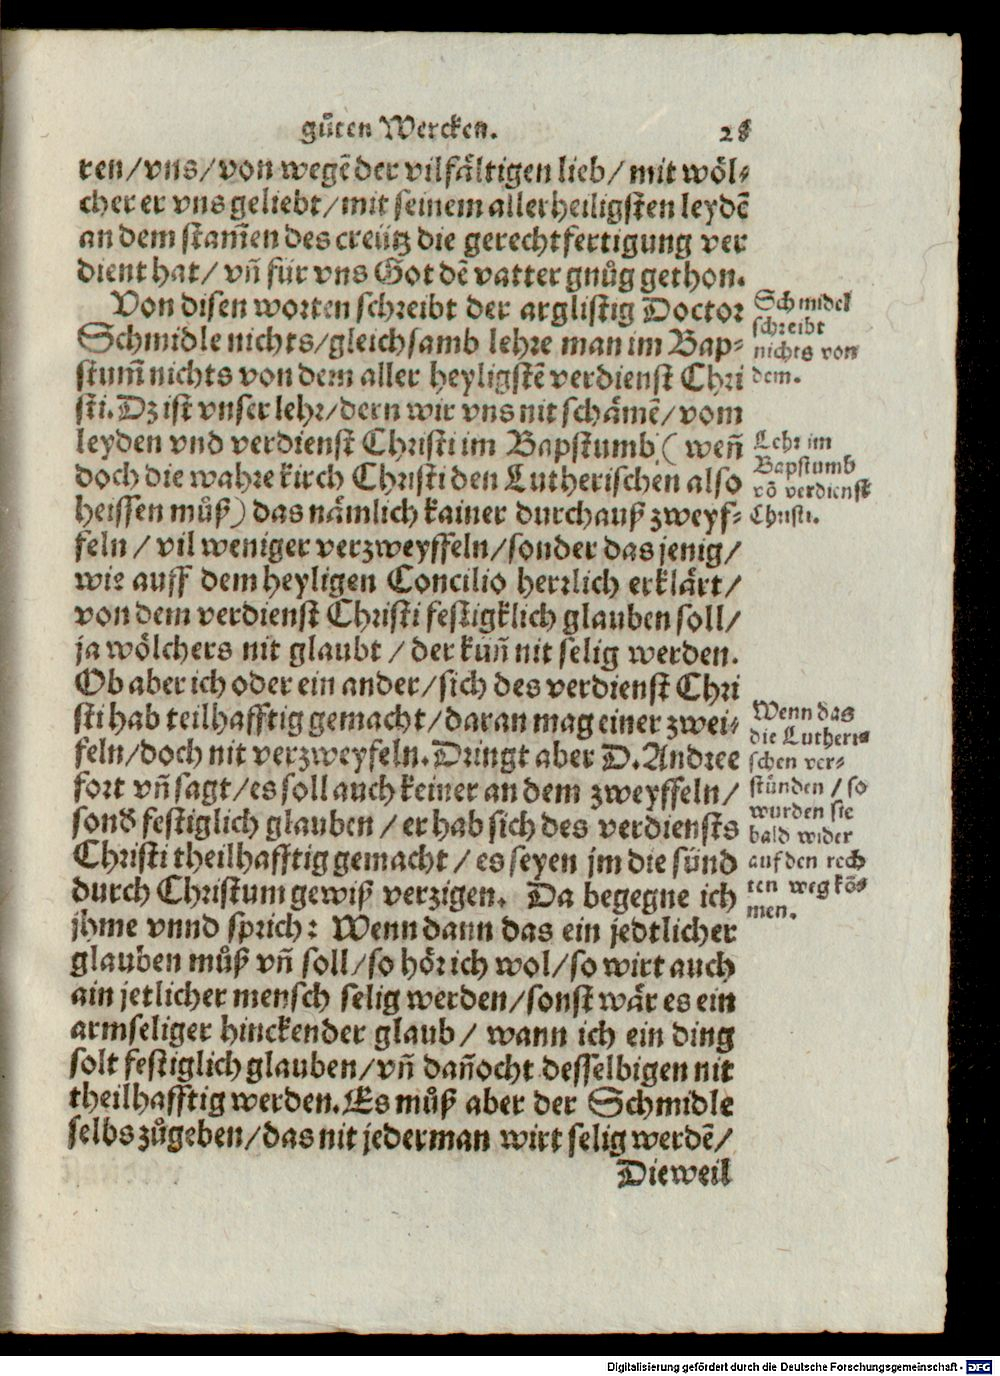 guͤten Wercken. 28
ren/vns/von wegẽ der vilfaͤltigen lieb/ mit woͤl-
cher er vns geliebt/mit seinem allerheiligsten leydẽ
an dem stam̃en des creuͤtz die gerechtfertigung ver
dient hat/ vñ fuͤr vns Got dẽ vatter gnuͦg gethon.
Von disen worten schreibt der arglistig Doctor
Schmidle nichts/gleichsamb lehre man im Bap-
stum̃ nichts von dem aller heyligstẽ verdienst Chri
sti. Dz ist vnser lehr/dern wir vns nit schaͤmẽ/ vom
leyden vnd verdienst Christi im Bapstumb ( weñ
doch die wahre kirch Christi den Lutherischen also
heissen muͦß) das naͤmlich kainer durchauß zweyf-
feln / vil weniger verzweyffeln/sonder das jenig/
wie auff dem heyligen Concilio herrlich erklaͤrt/
von dem verdienst Christi festigklich glauben soll/
ja woͤlchers nit glaubt / der kuͤñ nit selig werden.
Ob aber ich oder ein ander/sich des verdienst Chri
sti hab teilhafftig gemacht/daran mag einer zwei-
feln/doch nit verzweyfeln. Dringt aber D. Andree
fort vñ sagt/es soll auch keiner an dem zweyffeln/
sond̃ festiglich glauben / er hab sich des verdiensts
Christi theilhafftig gemacht / es seyen jm die suͤnd
durch Christum gewiß verzigen. Da begegne ich
jhme vnnd sprich: Wenn dann das ein jedtlicher
glauben muͦß vñ soll/so hoͤr ich wol/so wirt auch
ain jetlicher mensch selig werden/sonst waͤr es ein
armseliger hinckender glaub/ wann ich ein ding
solt festiglich glauben/vñ dañocht desselbigen nit
theilhafftig werden. Es muͦß aber der Schmidle
selbs zuͦgeben/das nit jederman wirt selig werdẽ/
Dieweil
Schmidel
schreibt
nichts von
dem.
Lehr im
Bapstumb
võ verdienst
Christi.
Wenn das
die Lutheri-
schen ver-
stuͤnden / so
wurden sie
bald wider
auf den rech
ten weg kõ-
men.
Digitalisierung gefördert durch die Deutsche Forschungsgemeinschaft - DFG